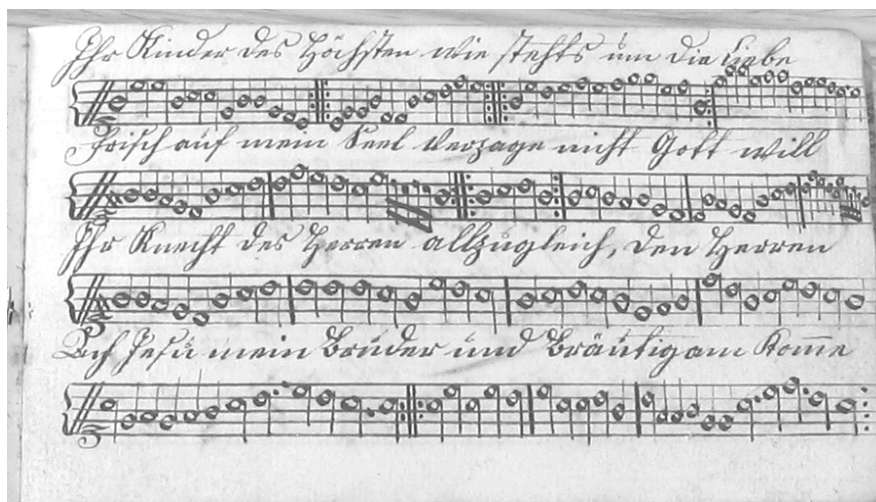 Ihr Kinder des Höchsten wie stehts üm die Liebe
Frisch auf mein Seel verzage nicht Gott will
Ihr Knecht des Herren allzugleich, den Herren
Ach Jesu mein Brüder und Bräutigam Kom̄e